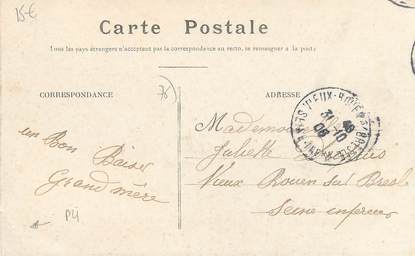 15€
Carte Postale
Tous les pays étrangers n'acceptent pas la correspondance au recto, se renseigner à la poste
CORRESPONDANCE
76
ADRESSE
un Bon
Baiser
Grand mère
Mademoiselle
Juliette
Vieux Rouen sur Bresle
Seine inferieure
31-10
08